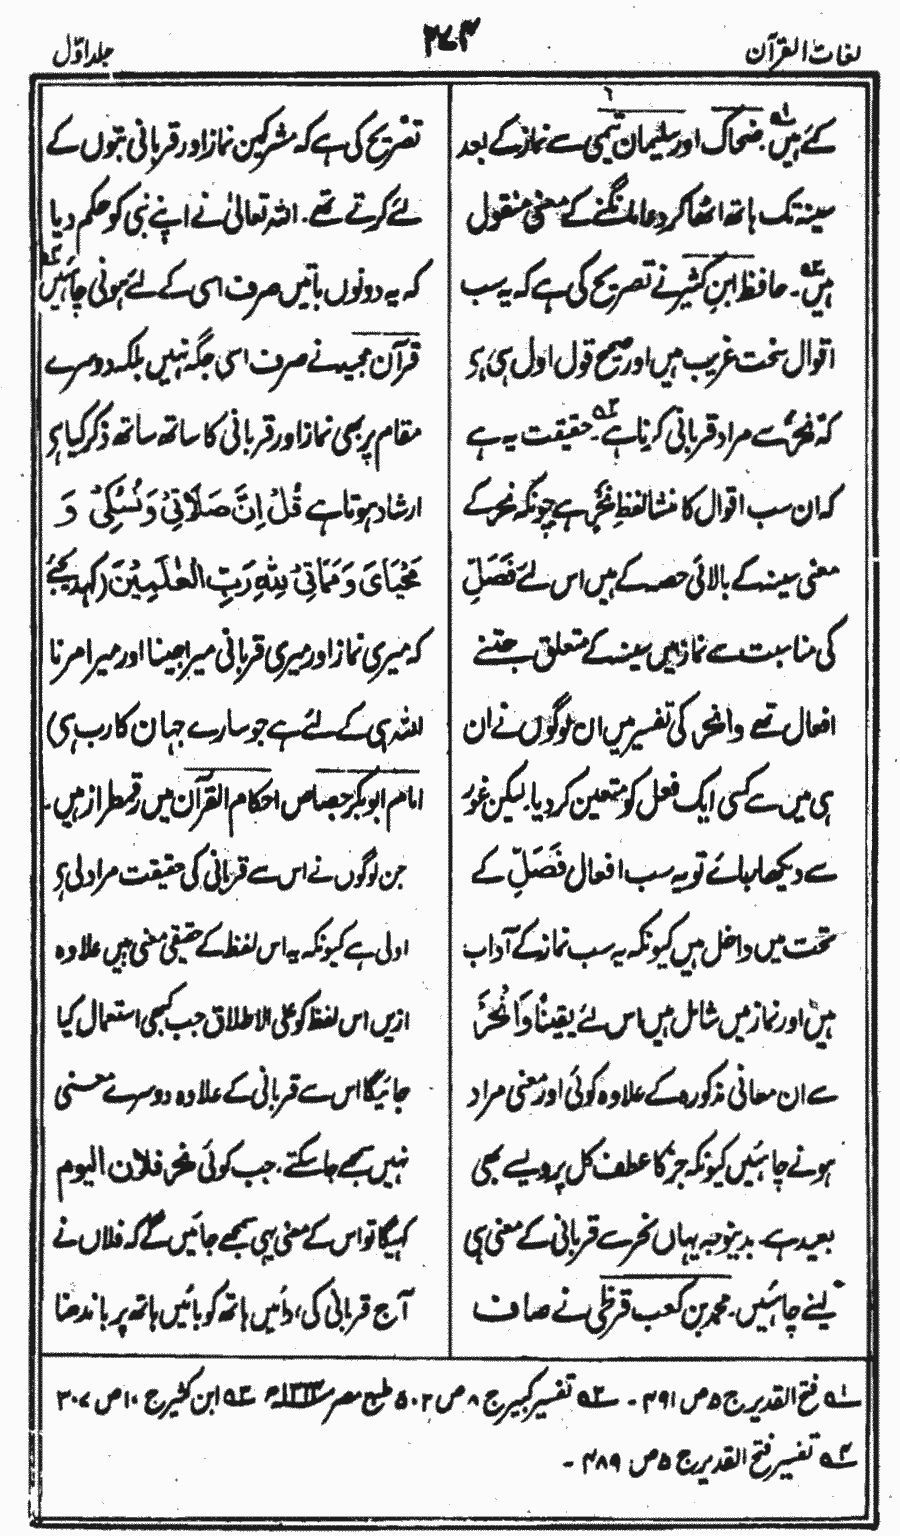 لغات القرآن
۲۷۴
جلد اوّل
گئے ہیں۔ ضحاک اور سلیمان تیمی سے نماز کے بعد
سینہ تک ہاتھ اٹھا کر دعا مانگنے کے معنی منقول
ہیں۔ حافظ ابن کثیر نے تصریح کی ہے کہ یہ سب
اقوال سخت غریب ہیں اور صحیح قول اول ہی ہے
کہ نحر سے مراد قربانی کرنا ہے۔ حقیقت یہ ہے
کہ ان سب اقوال کا منشا لفظ نحر ہے چونکہ نحر کے
معنی سینہ کے بالائی حصہ کے ہیں اس لئے فَصَلِّ
کی مناسبت سے نماز میں سینہ کے متعلق جتنے
افعال تھے وانحر کی تفسیر میں ان لوگوں نے ان
ہی میں سے کسی ایک فعل کو متعین کر دیا۔ لیکن غور
سے دیکھا جائے تو یہ سب افعال فَصَلِّ کے
تحت میں داخل ہیں کیونکہ یہ سب نماز کے آداب
ہیں اور نماز میں شامل ہیں اس لئے یقیناً وَانْحَرْ
سے ان معانی مذکورہ کے علاوہ کوئی اور معنی مراد
ہونے چاہئیں کیونکہ جز کا عطف کل پر ویسے بھی
بعید ہے۔ بدینوجہ یہاں نحر سے قربانی کے معنی ہی
لینے چاہئیں۔ محمد بن کعب قرظی نے صاف
تصریح کی ہے کہ مشرکین نماز اور قربانی بتوں کے
لئے کرتے تھے۔ اللہ تعالیٰ نے اپنے نبی کو حکم دیا
کہ یہ دونوں باتیں صرف اسی کے لئے ہونی چاہئیں
قرآن مجید نے صرف اسی جگہ نہیں بلکہ دوسرے
مقام پر بھی نماز اور قربانی کا ساتھ ساتھ ذکر کیا ہے
ارشاد ہوتا ہے قُلْ اِنَّ صَلَاتِیْ وَنُسُکِیْ وَ
مَحْیَایَ وَمَمَاتِیْ لِلّٰهِ رَبِّ الْعٰلَمِیْنَ (کہدیجئے
کہ میری نماز اور میری قربانی میرا جینا اور میرا مرنا
اللہ ہی کے لئے ہے جو سارے جہان کا رب ہے)
امام ابوبکر جصاص احکام القرآن میں رقمطراز ہیں۔
جن لوگوں نے اس سے قربانی کی حقیقت مراد لی ہے
اولی ہے کیونکہ یہ اس لفظ کے حقیقی معنی ہیں علاوہ
ازیں اس لفظ کو علی الاطلاق جب بھی استعمال کیا
جائیگا اس سے قربانی کے علاوہ دوسرے معنی
نہیں سمجھے جا سکتے۔ جب کوئی نحر فلان الیوم
کہیگا تو اس کے معنی یہی سمجھے جائیں گے کہ فلاں نے
آج قربانی کی، دائیں ہاتھ کو بائیں ہاتھ پر باندھنا
۱ فتح القدیر ج ۵ ص ۴۹۱ ۔ ۲ تفسیر کبیر ج ۸ ص ۵۰۲ طبع مصر ۳ ابن کثیر ج ۱۰ ص ۳۰۷
۴ تفسیر فتح القدیر ج ۵ ص ۴۸۹ ۔